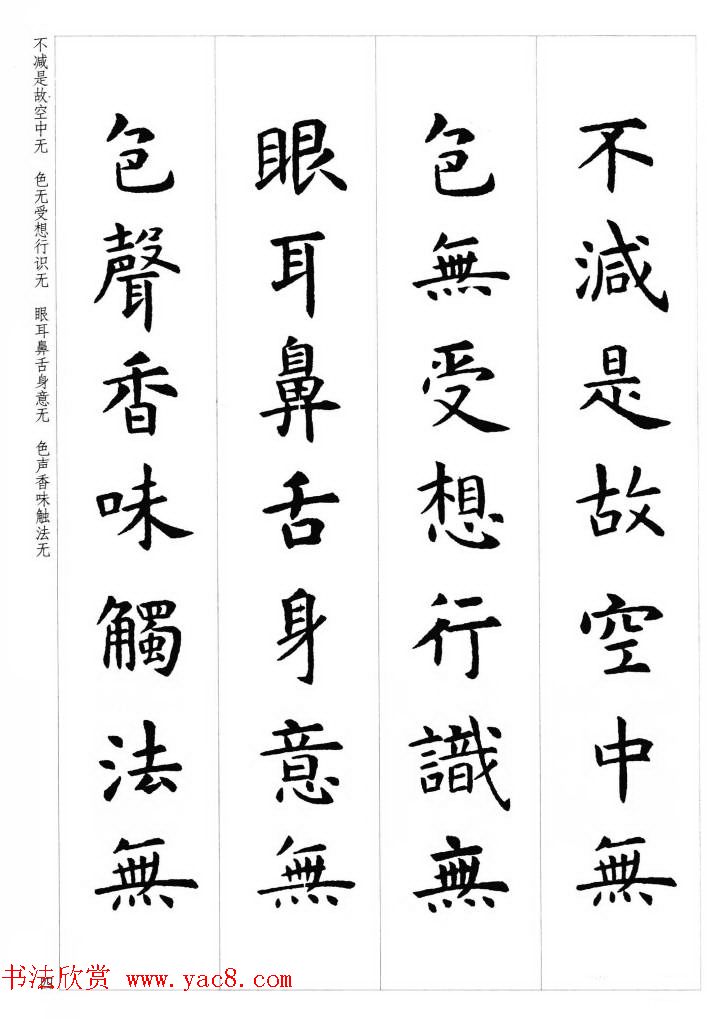 不減是故空中無
色無受想行識無
眼耳鼻舌身意無
色聲香味觸法無
不减是故空中无 色无受想行识无 眼耳鼻舌身意无 色声香味触法无
四
书法欣赏 www.yac8.com